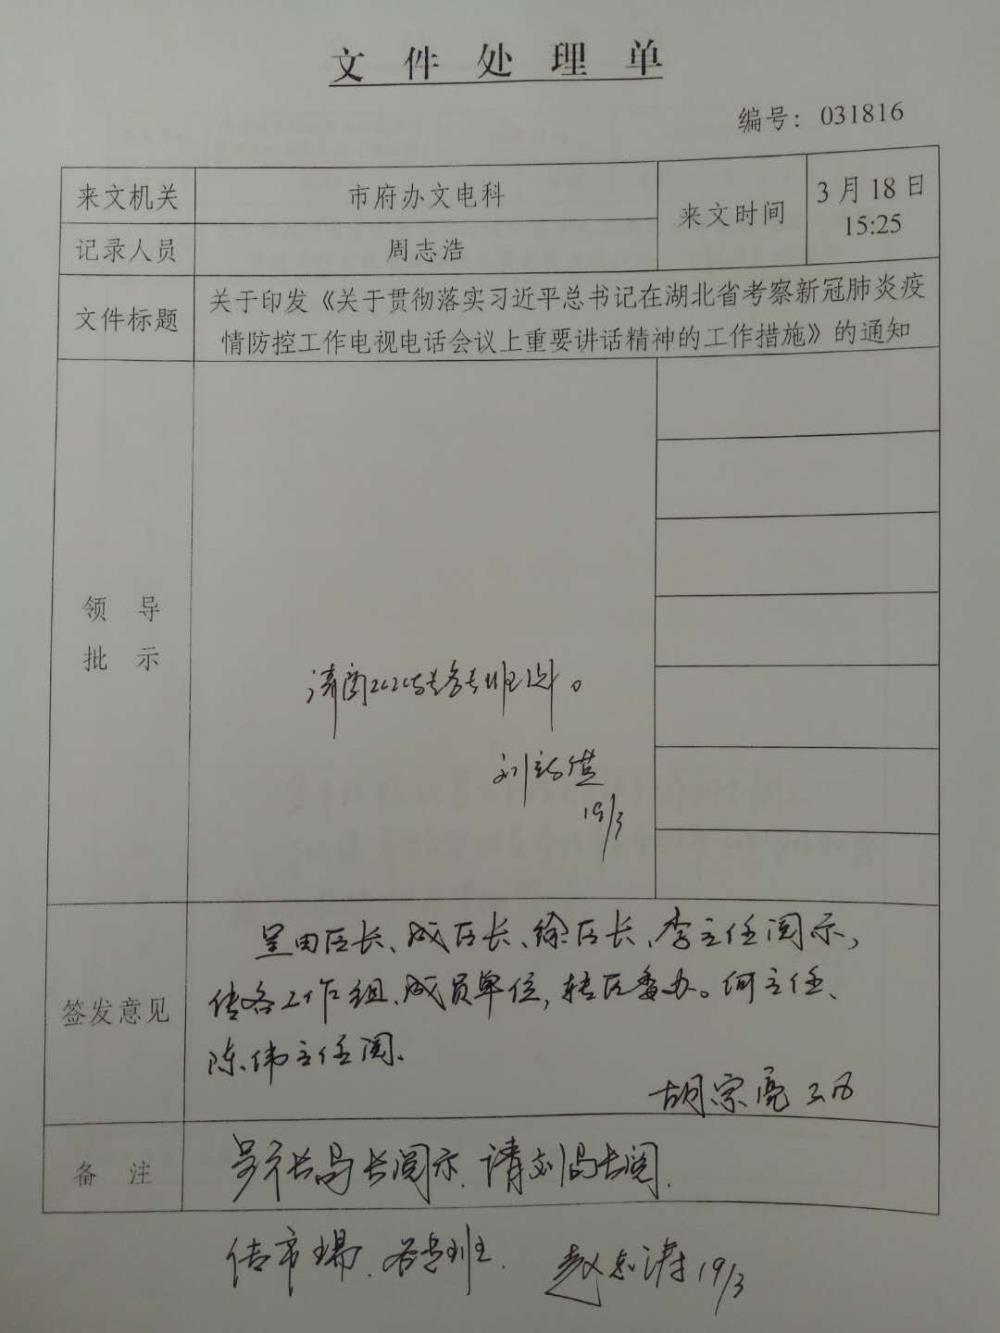 文件处理单
编号：031816
来文机关
市府办文电科
来文时间
3月18日
15:25
记录人员
周志浩
文件标题
关于印发《关于贯彻落实习近平总书记在湖北省考察新冠肺炎疫
情防控工作电视电话会议上重要讲话精神的工作措施》的通知
领 导
批 示
19/3
签发意见
呈田区长、成区长、徐区长、李主任阅示，
传各工作组、成员单位，转区委办。何主任、
陈伟主任阅。
胡宗亮
备 注
局长阅示 请刘局长阅
各专班 赵志涛 19/3